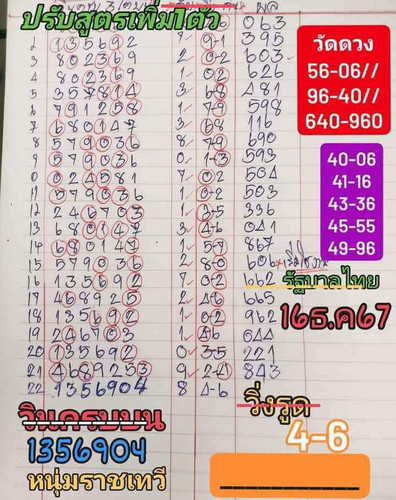 ปรับสูตรเพิ่ม1ตัว
063
2 135692 9-1 395
3 802369 2 0-2 603
4 802369 1 02 626
5 357814 3 68 481
6 791258 1 79 598
7 680147 3 58 116
8 579036 8 79 690
9 579036 0 1-3 593
10 024581 7 02 504
11 579036 1 0-2 503
12 246703 1 3-5 336
13 680147 3 4-6 041
14 680147 1 5-7 867
15 579036 2 8-0 606
16 135692 7 0-2 662
17 468925 2 4-6 665
18 135692 1 0-2 962
19 246703 1 46 044
20 135692 0 3-5 221
21 4689253 9 2-4 843
22 1356904 8 4-6
วัดดวง
56-06//
96-40//
640-960
40-06
41-16
43-36
45-55
49-96
รัฐบาลไทย
16ธ.ค67
วินครบบน
1356904
หนุ่มราชเทวี
วิ่งรูด
4-6